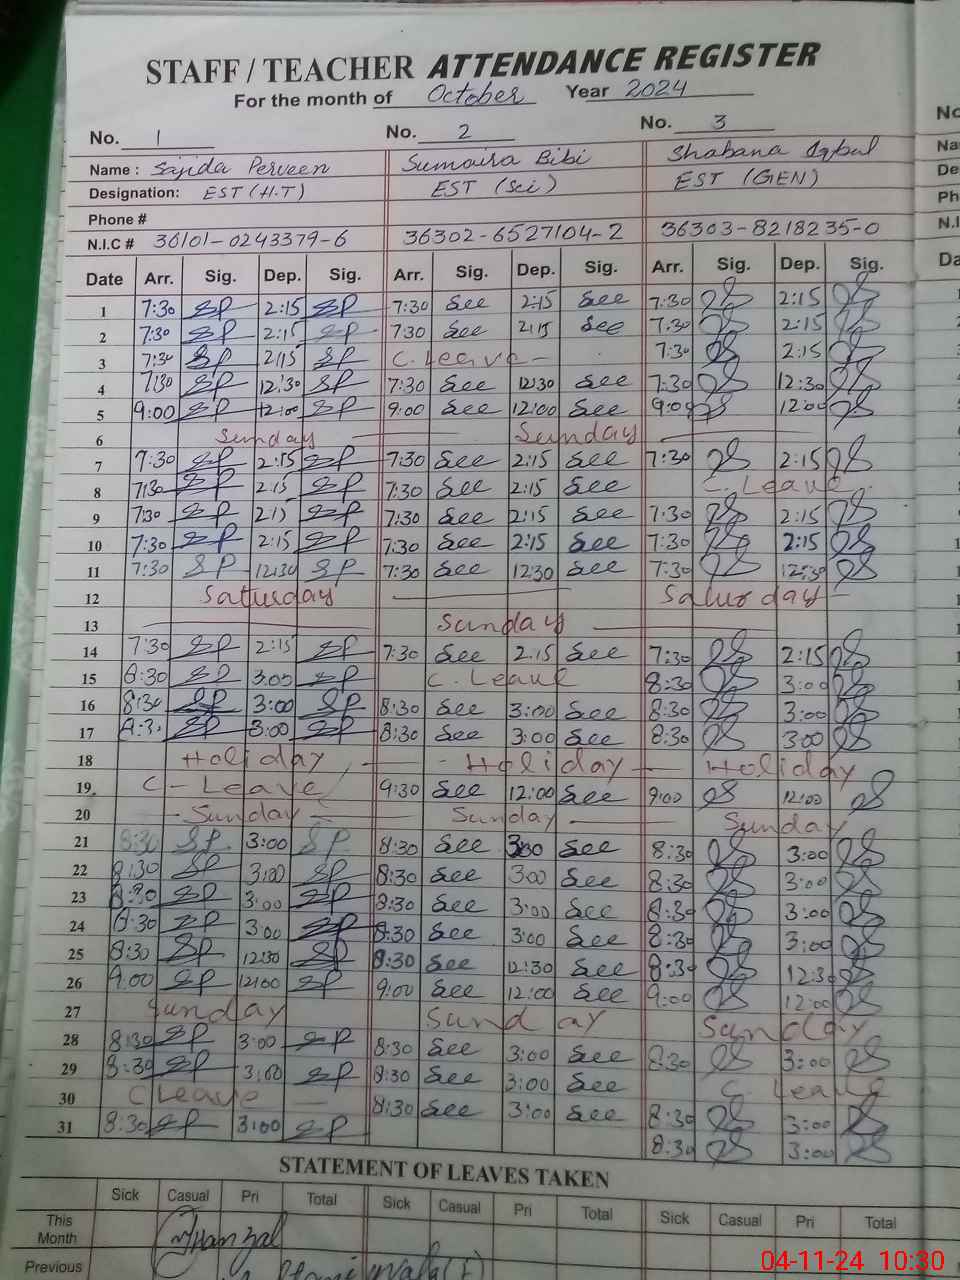 STAFF / TEACHER ATTENDANCE REGISTER
For the month of October Year 2024
No. 1 No. 2 No. 3
Name : Sajida Perveen Sumaira Bibi Shabana Iqbal
Designation: EST (H.T) EST (Sci) EST (GEN)
Phone #
N.I.C # 36101-0243379-6 36302-6527104-2 36303-8218235-0
Date Arr. Sig. Dep. Sig. Arr. Sig. Dep. Sig. Arr. Sig. Dep. Sig.
1 7:30 SP 2:15 SP 7:30 See 2:15 See 7:30 2:15
2 7:30 SP 2:15 SP 7:30 See 2:15 See 7:30 2:15
3 7:30 SP 2:15 SP C. Leave 7:30 2:15
4 7:30 SP 12:30 SP 7:30 See 12:30 See 7:30 12:30
5 9:00 SP 12:00 SP 9:00 See 12:00 See 9:00 12:00
6 Sunday Sunday
7 7:30 SP 2:15 SP 7:30 See 2:15 See 7:30 2:15
8 7:30 SP 2:15 SP 7:30 See 2:15 See C. Leave
9 7:30 SP 2:15 SP 7:30 See 2:15 See 7:30 2:15
10 7:30 SP 2:15 SP 7:30 See 2:15 See 7:30 2:15
11 7:30 SP 12:30 SP 7:30 See 12:30 See 7:30 12:30
12 Saturday Saturday
13 Sunday
14 7:30 SP 2:15 SP 7:30 See 2:15 See 7:30 2:15
15 8:30 SP 3:00 SP C. Leave 8:30 3:00
16 8:30 SP 3:00 SP 8:30 See 3:00 See 8:30 3:00
17 8:30 SP 3:00 SP 8:30 See 3:00 See 8:30 3:00
18 Holiday Holiday Holiday
19 C-Leave 9:30 See 12:00 See 9:00 12:00
20 Sunday Sunday Sunday
21 8:30 SP 3:00 SP 8:30 See 3:00 See 8:30 3:00
22 8:30 SP 3:00 SP 8:30 See 3:00 See 8:30 3:00
23 8:30 SP 3:00 SP 8:30 See 3:00 See 8:30 3:00
24 8:30 SP 3:00 SP 8:30 See 3:00 See 8:30 3:00
25 8:30 SP 12:30 SP 8:30 See 12:30 See 8:30 12:30
26 9:00 SP 12:00 SP 9:00 See 12:00 See 9:00 12:00
27 Sunday Sunday Sunday
28 8:30 SP 3:00 SP 8:30 See 3:00 See 8:30 3:00
29 8:30 SP 3:00 SP 8:30 See 3:00 See C. Leave
30 C Leave 8:30 See 3:00 See 8:30 3:00
31 8:30 SP 3:00 SP 8:30 3:00
STATEMENT OF LEAVES TAKEN
Sick Casual Pri Total Sick Casual Pri Total Sick Casual Pri Total
This Month
Previous
04-11-24 10:30